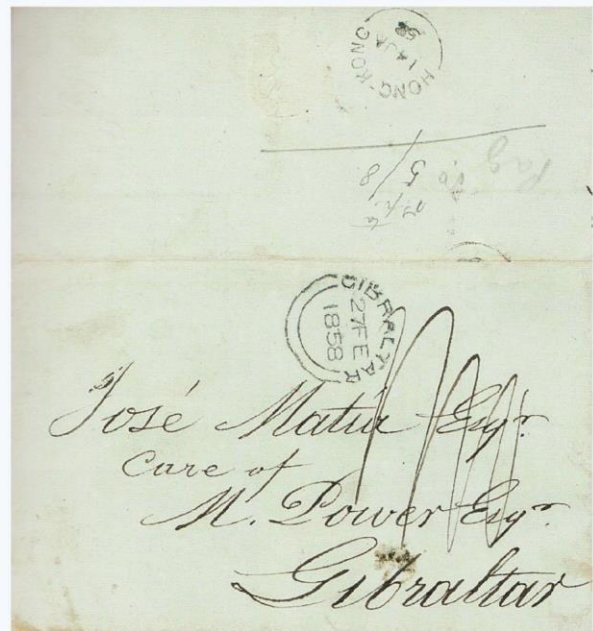 HONG-KONG
14 JA
58
GIBRALTAR
27 FE
1858
José Matiá Esqr.
Care of
M. Power Esqr.
Gibraltar